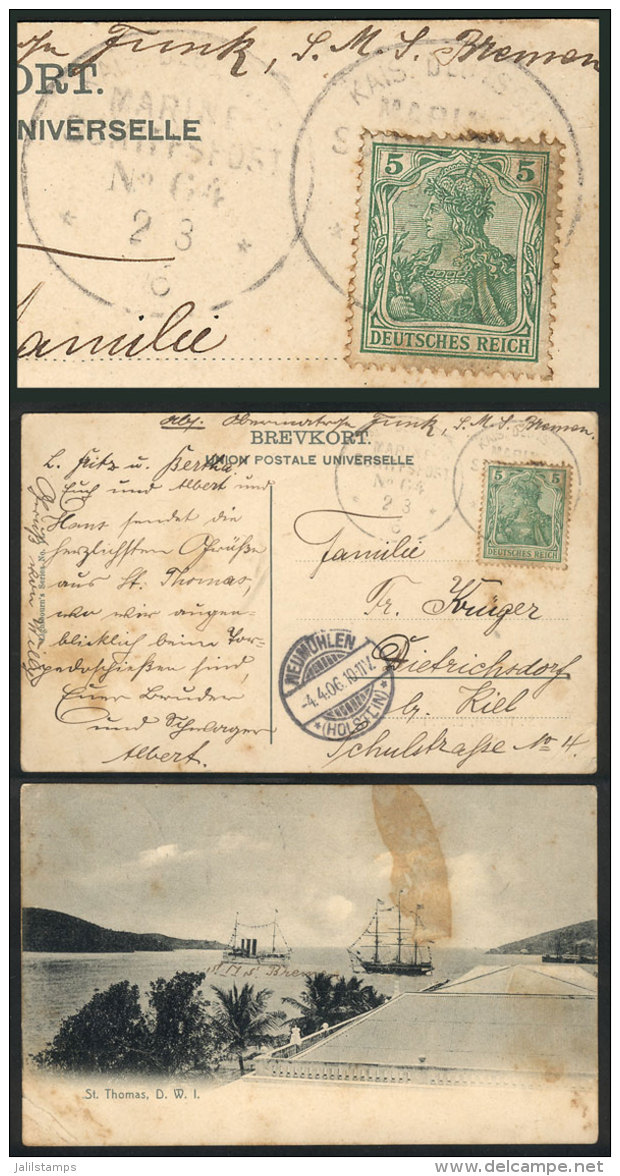 Funk, S. M. S. Bremen
ORT.
NIVERSELLE
KAIS. DEUTSCHE
MARINE-
SCHIFFSPOST
No 64
* 2 3 *
6
KAIS. DEUTSCHE
MARINE
5 5
DEUTSCHES REICH
Familie
Abs. Obermatrose Funk, S. M. S. Bremen.
BREVKORT.
UNION POSTALE UNIVERSELLE
MARINE
No 64
2 3
6
KAIS. DEUTSCHE
MARINE
5 5
DEUTSCHES REICH
L. Fritz u. Bertha
Euch und Albert und
Hans sendet die
herzlichsten Grüße
aus St. Thomas,
wo wir augen-
blicklich beim Tor-
pedoschießen sind,
Euer Bruder
und Schwager
Albert.
Lightbourn's Series No.
Familie
Fr. Krüger
Dietrichsdorf
b/ Kiel
Schulstrasse No 4.
NEUMÜHLEN
-4.4.06.10-11V.
* (HOLSTEIN) *
S. M. S. Bremen
St. Thomas, D. W. I.
jalilstamps
delcampe.net